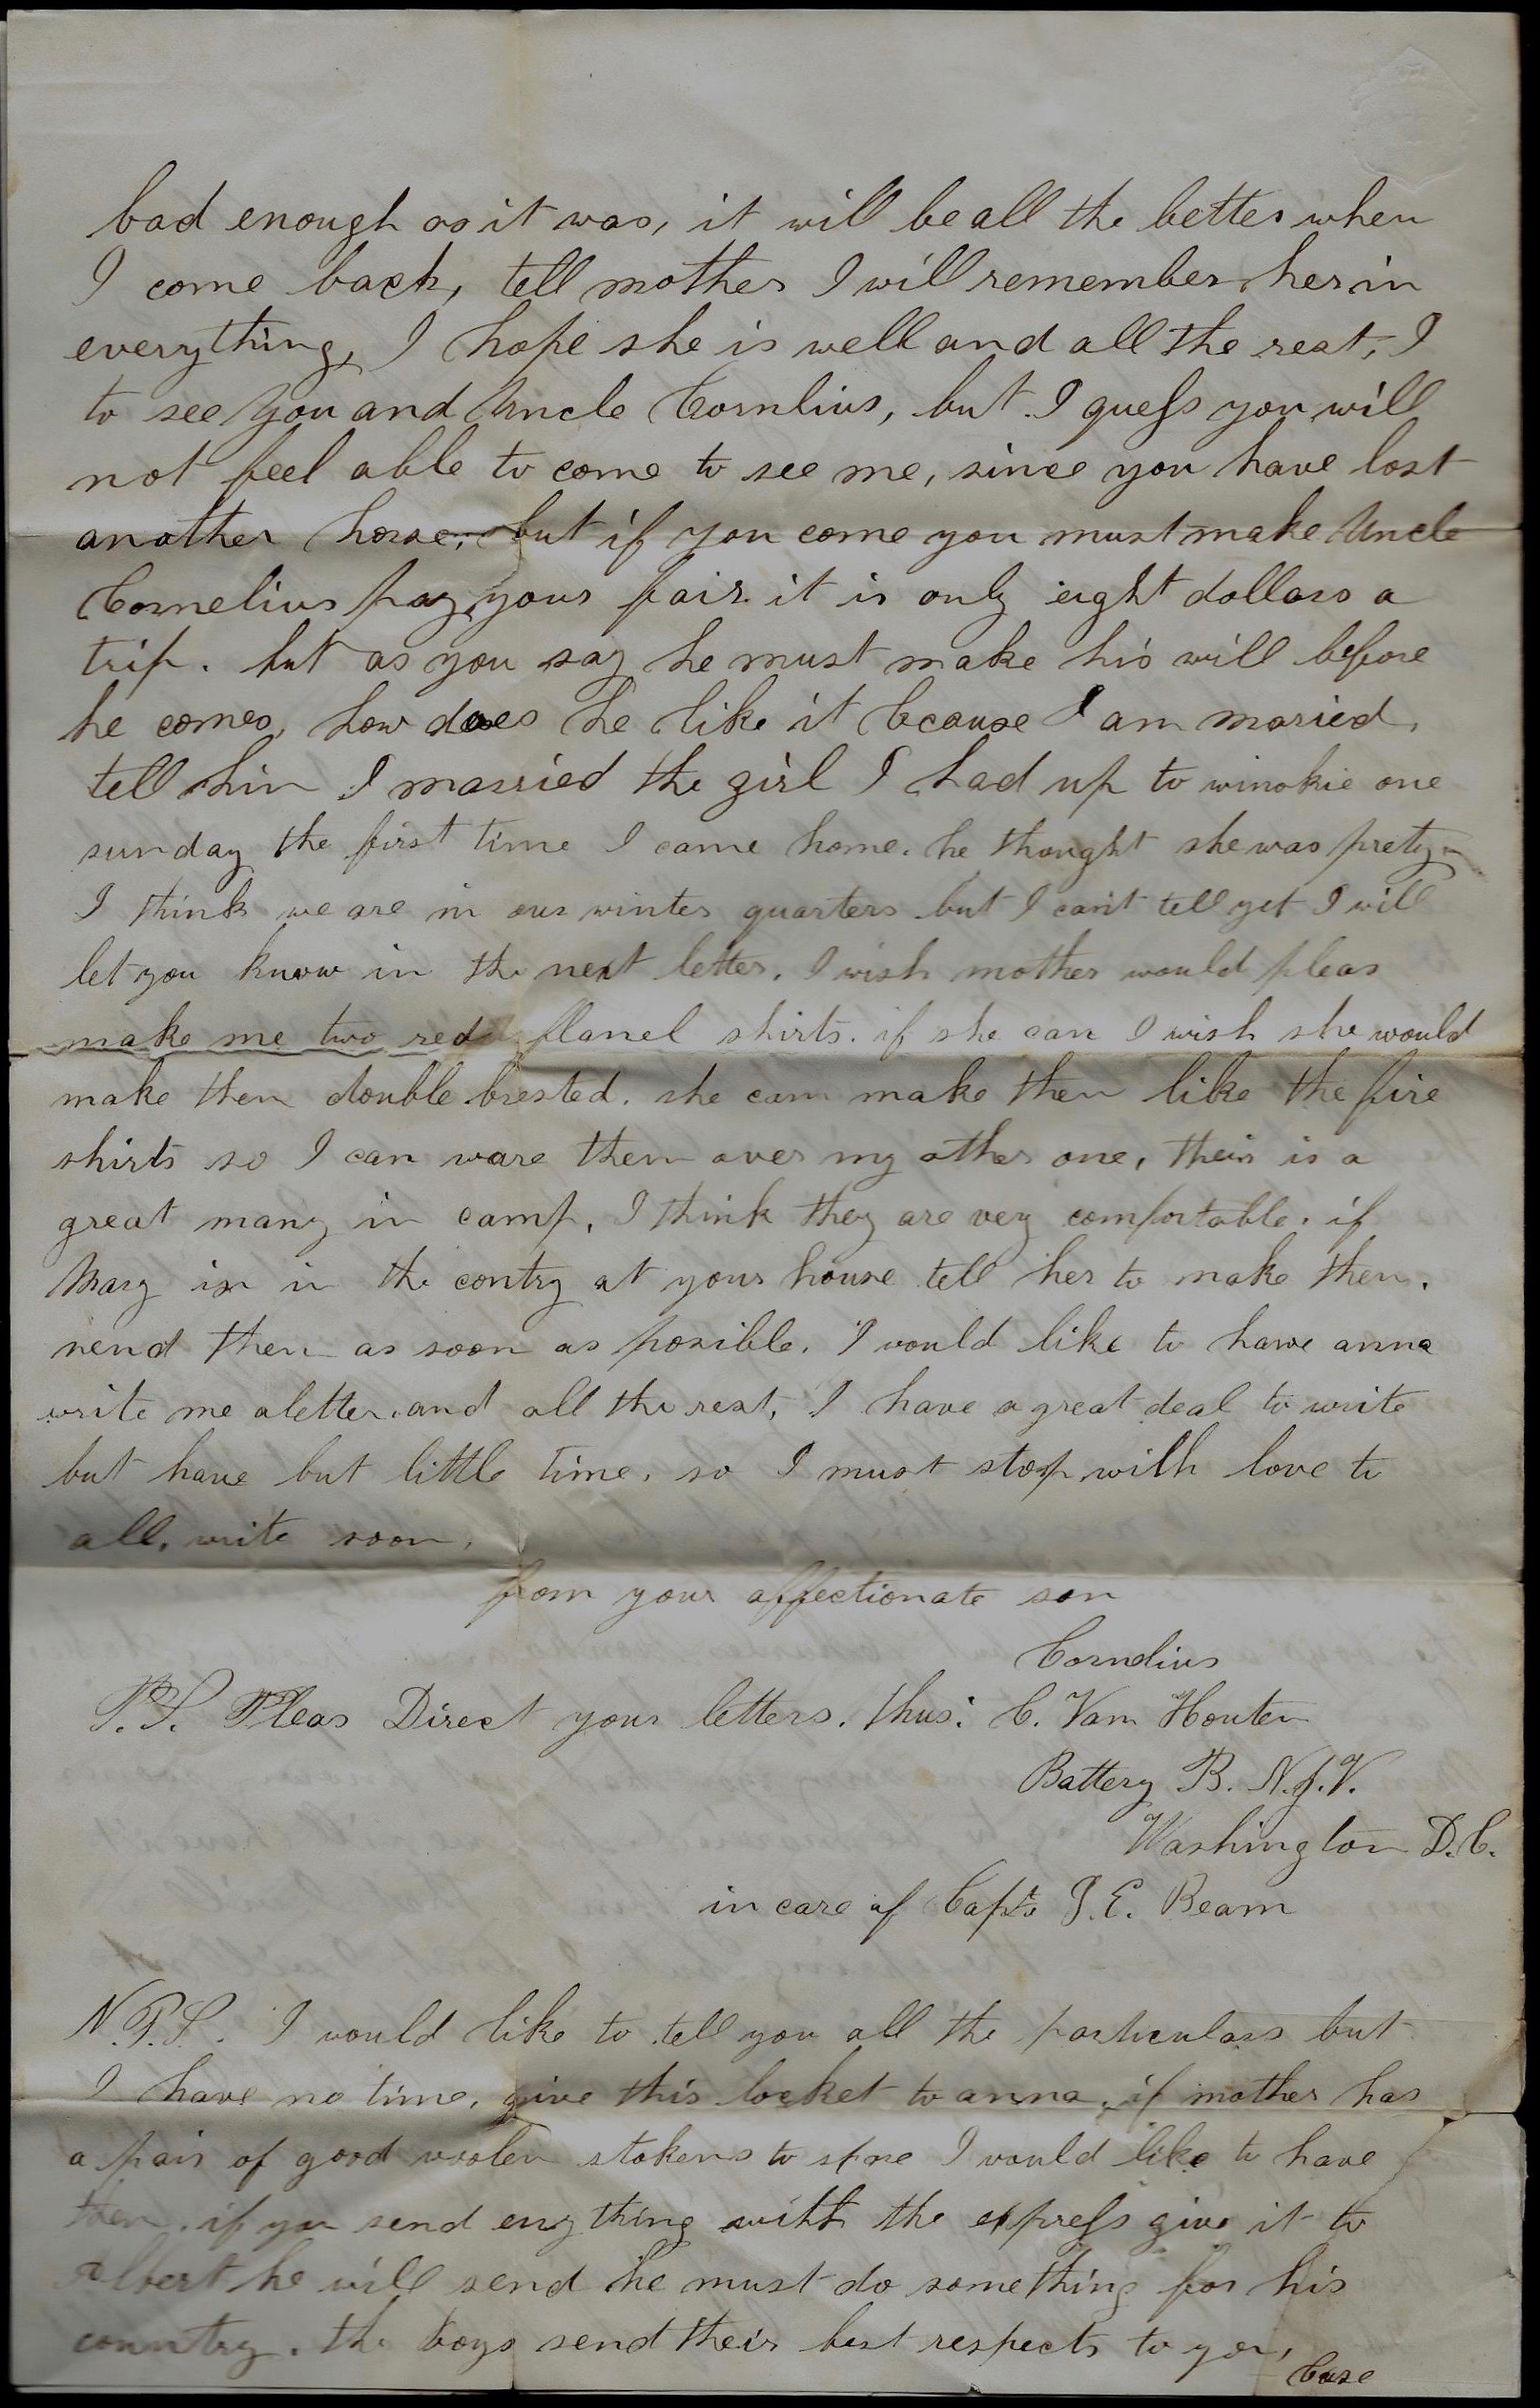 bad enough as it was, it will be all the better when
I come back, tell mother I will remember her in
everything, I hope she is well and all the rest, I
to see you and Uncle Cornlius, but I guess you will
not feel able to come to see me, since you have lost
another horse, but if you come you must make Uncle
Cornelius pay your fair it is only eight dollars a
trip. but as you say he must make his will before
he comes, how does he like it because I am maried,
tell him I married the girl I had up to winokie one
sunday the first time I came home. he thought she was prety
I think we are in our winter quarters but I can't tell yet I will
let you know in the next letter. I wish mother would pleas
make me two red flanel shirts. if she can I wish she would
make them double brested. she can make them like the fire
shirts so I can ware them over my other one, their is a
great many in camp, I think they are very comfortable. if
Mary is in the contry at your house tell her to make them.
send them as soon as posible. I would like to have anna
write me a letter. and all the rest, I have a great deal to write
but have but little time. so I must stop with love to
all. write soon.
from your affectionate son
Cornelius
P.S. Pleas Direct your letters. thus: C. Van Houten
Battery B. N.J.V.
Washington D.C.
in care of Capt J.E. Beam
N.P.S. I would like to tell you all the particulars but
I have no time, give this locket to anna, if mother has
a pair of good woolen stokens to spare I would like to have
them. if you send eny thing with the express give it to
Albert he will send he must do something for his
country. the boys send their best respects to you,
Case